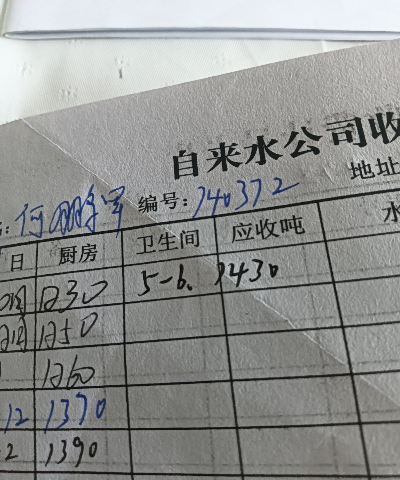 自来水公司收
编号: 740372 地址
日 厨房 卫生间 应收吨 水
1230 5-6. 1430
1250
1260
12 1370
2 1390